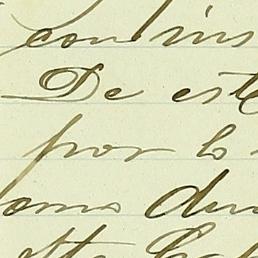 con ins
De este
por lo
omo du